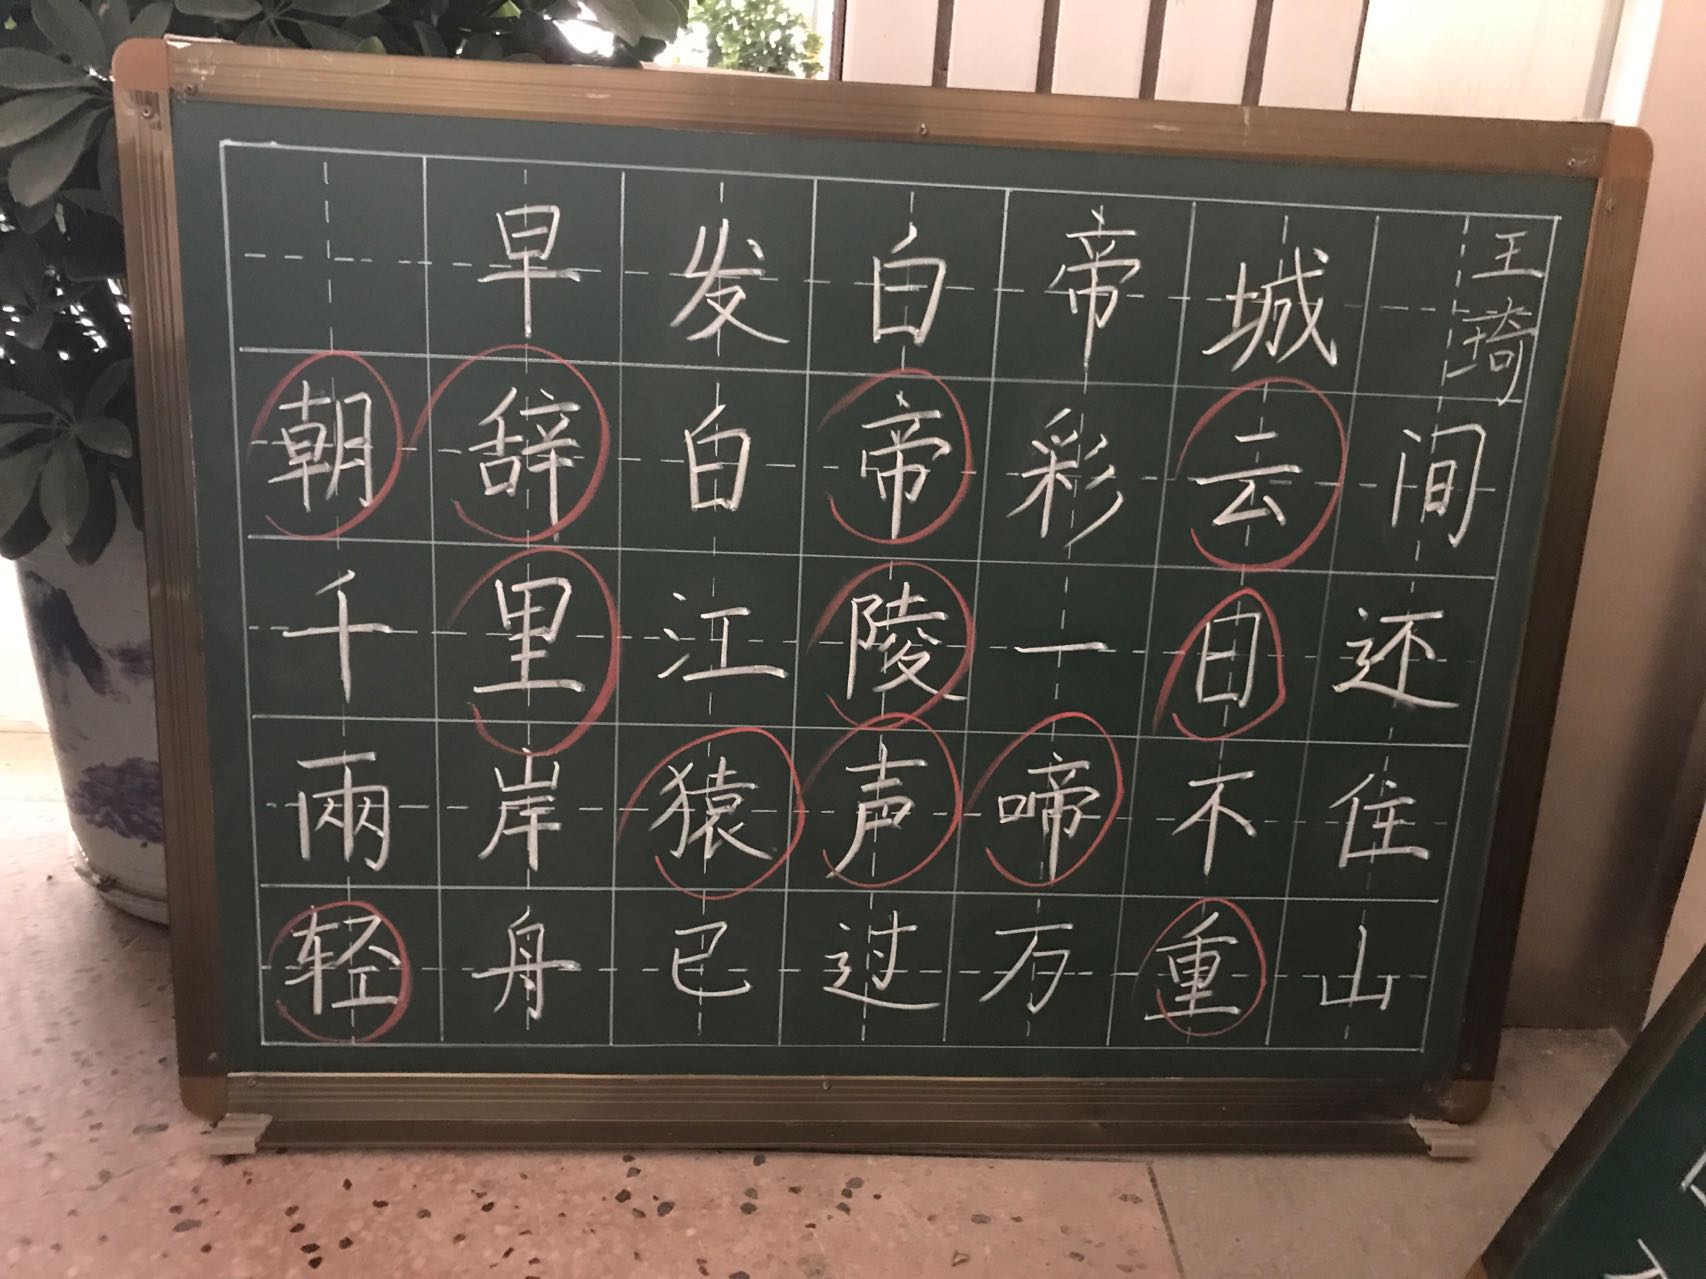 早发白帝城
王琦
朝辞白帝彩云间
千里江陵一日还
兩岸猿声啼不住
轻舟已过万重山